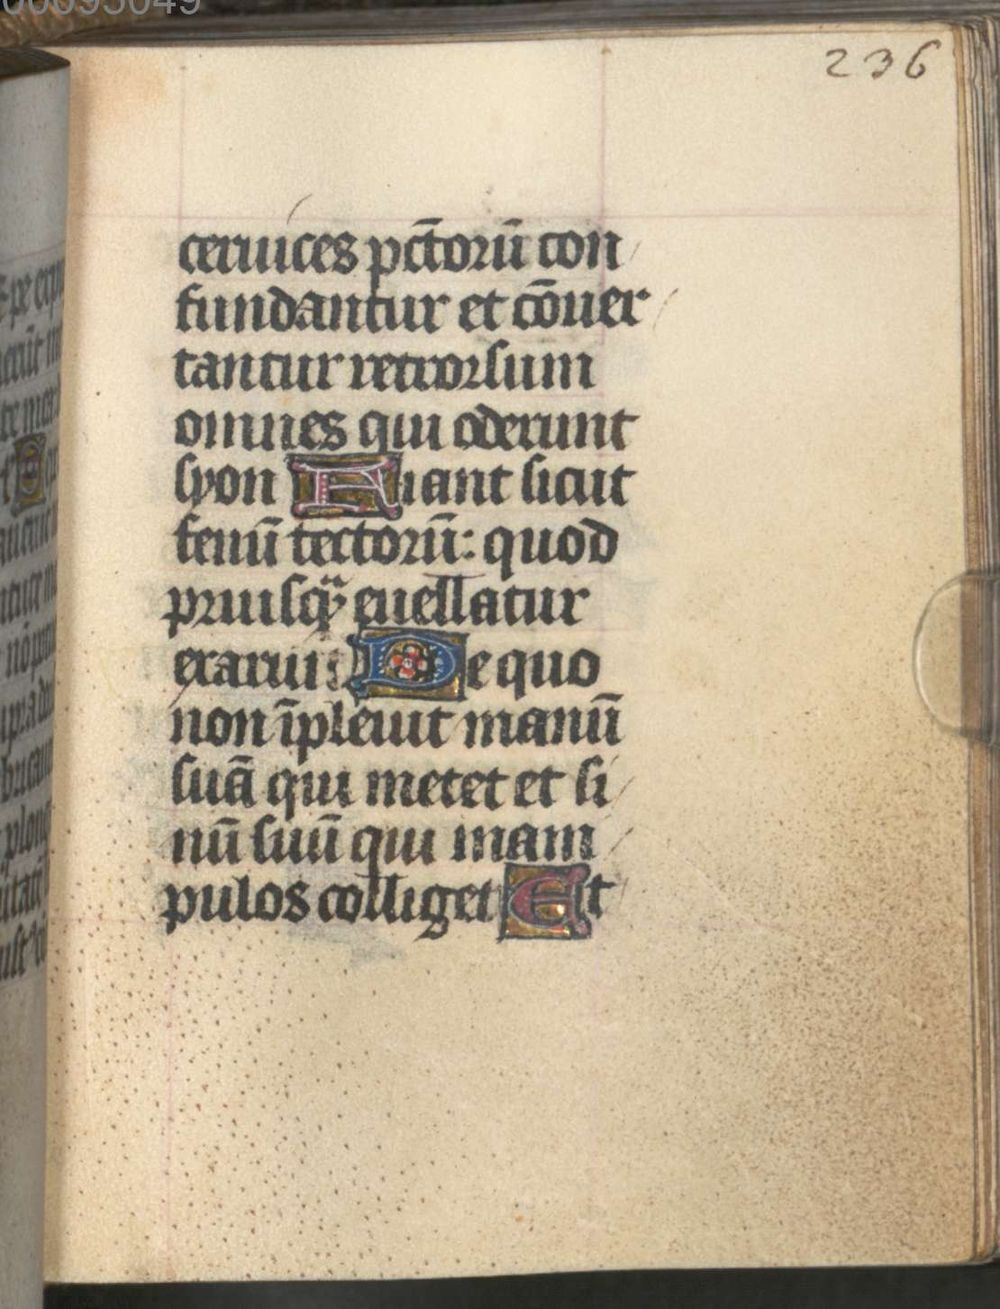 236
ceruices pctorū con
fundantur et cōuer
tantur retrorsum
omnes qui oderunt
syon Fiant sicut
fenū tectorū: quod
priusq̄ euellatur
exaruit De quo
non īpleuit manū
suā qui metet et si
nū suū qui mani
pulos colliget Et